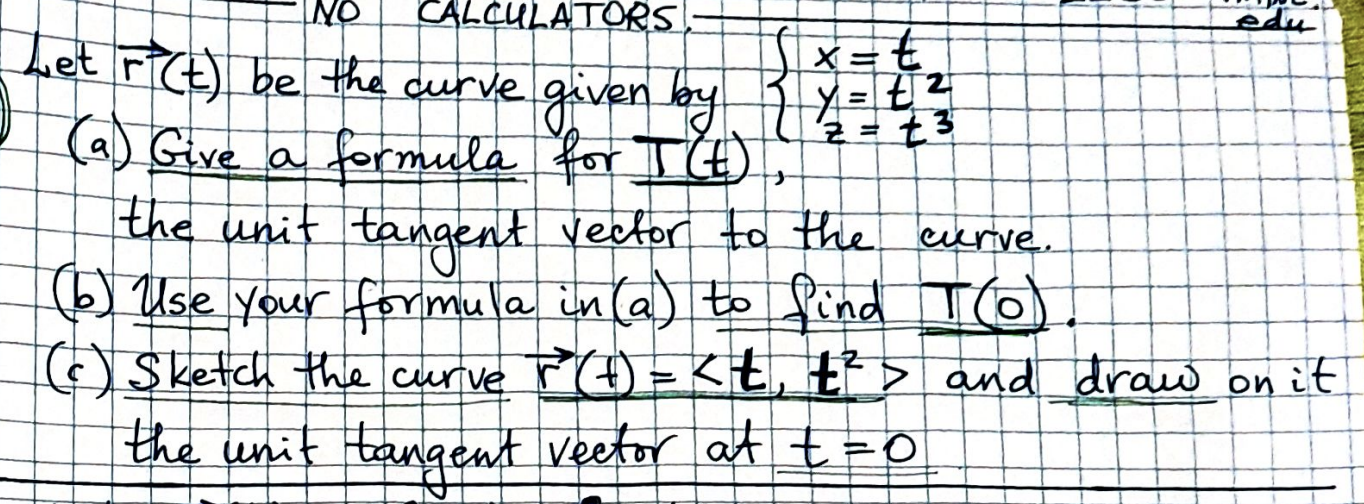 NO CALCULATORS.
edu
Let r→(t) be the curve given by { x = t
y = t²
z = t³
(a) Give a formula for T(t),
the unit tangent vector to the curve.
(b) Use your formula in (a) to find T(0).
(c) Sketch the curve r→(t) = <t, t²> and draw on it
the unit tangent vector at t = 0